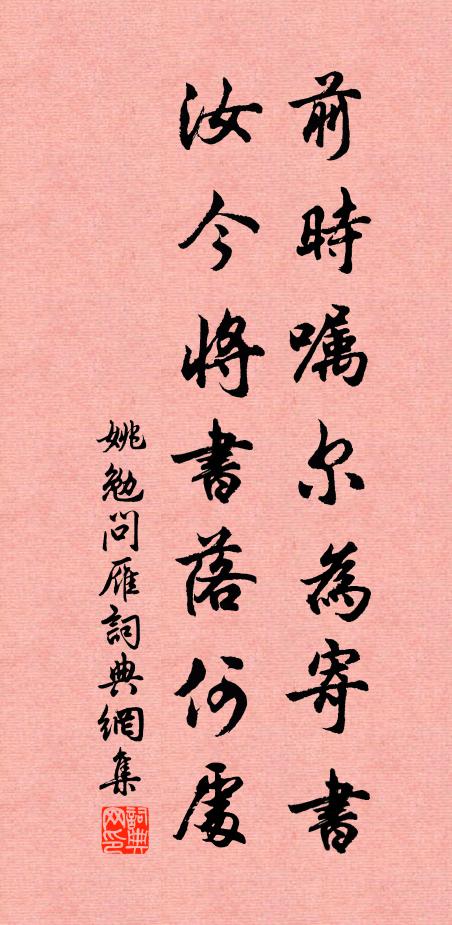 前時嘱尔為寄書
汝今將書落何處
姚勉問雁詞典網集
詞典
网印